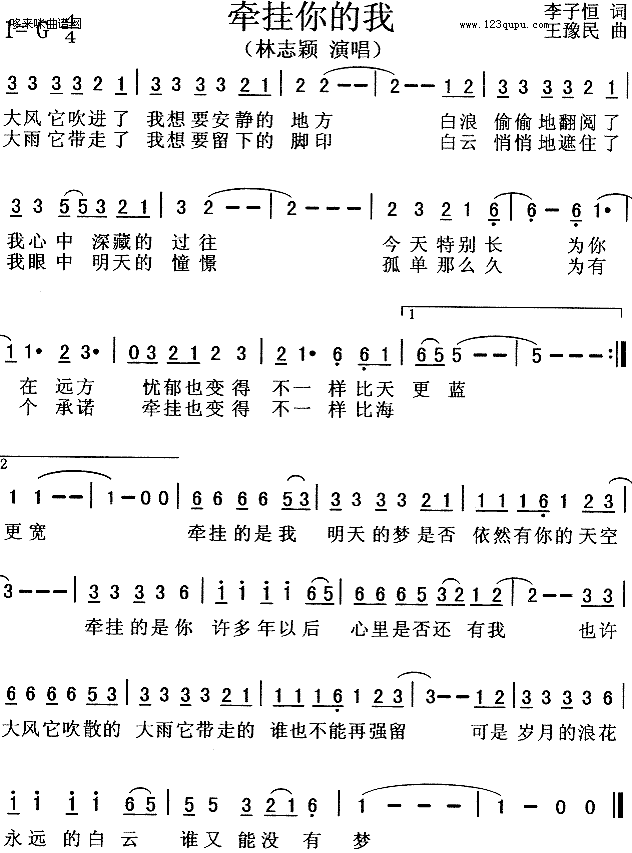 哆来咪曲谱网
牵挂你的我
(林志颖 演唱)
1=G 4/4
李子恒 词
www.123qupu.com
王豫民 曲
3 3 3 3 2 1 | 3 3 3 3 2 1 | 2 2 - - | 2 - - 1 2 | 3 3 3 3 2 1 |
大风它吹进了 我想要安静的 地方 白浪 偷偷地翻阅了
大雨它带走了 我想要留下的 脚印 白云 悄悄地遮住了
3 3 5 5 3 2 1 | 3 2 - - | 2 - - - | 2 3 2 1 6 | 6 - 6 1· |
我心中 深藏的 过往 今天特别长 为你
我眼中 明天的 憧憬 孤单那么久 为有
1 1· 2 3· | 0 3 2 1 2 3 | 2 1 1· 6 6 1 | 6 5 5 - - | 5 - - - :|
1
在 远方 忧郁也变得 不一 样比天 更 蓝
个 承诺 牵挂也变得 不一 样比海
2
1 1 - - | 1 - 0 0 | 6 6 6 6 5 3 | 3 3 3 3 2 1 | 1 1 1 6 1 2 3 |
更宽 牵挂的是我 明天的梦是否 依然有你的天空
3 - - - | 3 3 3 3 6 | i i i i 6 5 | 6 5 5 3 2 1 2 | 2 - - 3 3 |
牵挂的是你 许多年以后 心里是否还 有我 也许
6 6 6 6 5 3 | 3 3 3 3 2 1 | 1 1 1 6 2 3 | 3 - - 1 2 | 3 3 3 3 6 |
大风它吹散的 大雨它带走的 谁也不能再强留 可是 岁月的浪花
i i i i 6 5 | 5 5 3 2 1 6 | 1 - - - | 1 - 0 0 |
永远的白云 谁又能没有梦